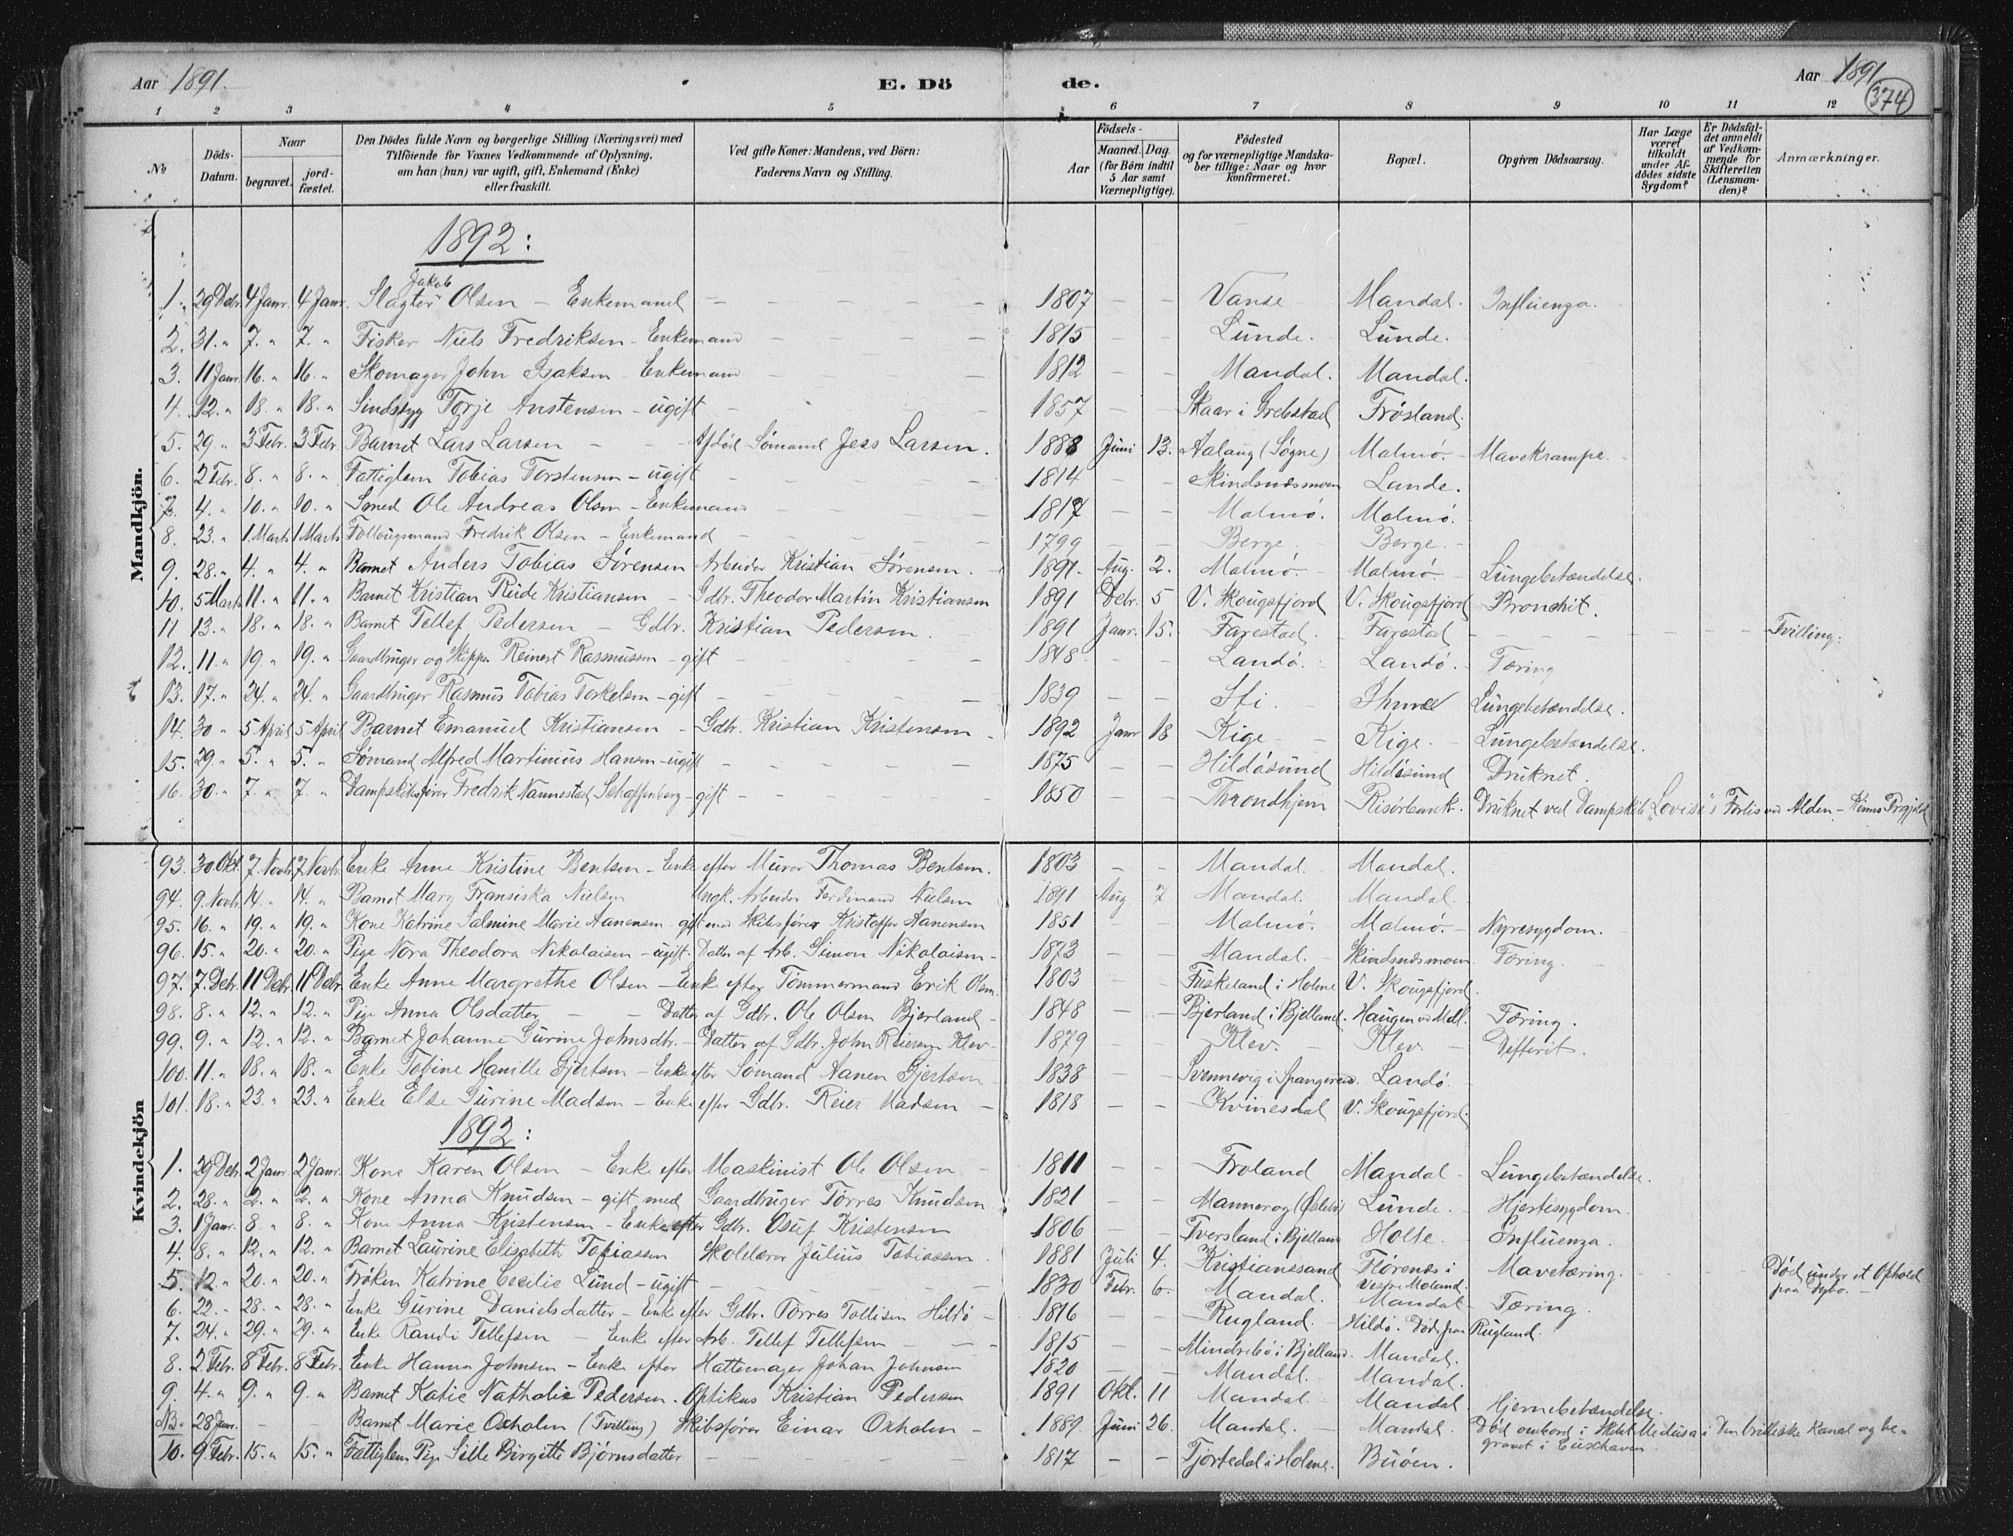 Aar 1891. E. Dö de. Aar 1891
374
1 2 3 4 5 6 7 8 9 10 11 12
No Döds-Datum. Naar begravet. jordfæstet. Den Dödes fulde Navn og borgerlige Stilling (Næringsvei) med Tilföiende for Voxnes Vedkommende af Oplysning, om han (hun) var ugift, gift, Enkemand (Enke) eller fraskilt. Ved gifte Koner: Mandens, ved Börn: Faderens Navn og Stilling. Födsels- Aar Maaned. Dag. (for Börn indtil 5 Aar samt Værnepligtige). Födested og for værnepligtige Mandskaber tillige: Naar og hvor konfirmeret. Bopæl. Opgiven Dödsaarsag. Har Læge været tilkaldt under Afdödes sidste Sygdom? Er Dödsfaldet anmeldt af Vedkommende for Skifteretten (Lensmanden)? Anmærkninger.
Mandkjön.
1892:
1. 29 Debr. 4 Janr. 4 Janr. Slagter Jakob Olsen – Enkemand – – 1807 – – Vanse Mandal. Influenza.
2. 31. " 7. " 7. " Fisker Niels Fredriksen – Enkemand – – 1815 – – Lunde. Lunde.
3. 11 Janr. 16. " 16. " Skomager John Isaksen – Enkemand – – 1812 – – Mandal. Mandal.
4. 12. " 18. " 18. " Sindssyg Torje Anstensen – ugift – – 1857 – – Skaar i Grebstad Frösland.
5. 29 " 3 Febr. 3 Febr. Barnet Lars Larsen – – Afdöd Sömand Jess Larsen. 1888 Juni 13. Aalaug (Søgne) Malmö. – Mavekrampe. –
6. 2 Febr. 8. " 8. " Fattiglem Tobias Torstensen – ugift – – 1814 – – Skindsnæsmoen Lande.
7. 4. " 10. " 10. " Smed Ole Andreas Olsen – Enkemand – – 1817 – – Malmö. Malmö.
8. 23. " 1 Marts 1 Marts Follougsmand Fredrik Olsen – Enkemand – – 1799 – – Berge. Berge. –
9. 28. " 4. " 4. " Barnet Anders Tobias Sørensen Arbeider Kristian Sørensen. – 1891. Aug. 2. Malmö. – Malmö. – Lungebetændelse.
10. 5 Marts 11. " 11. " Barnet Kristian Reide Kristiansen – Gdbr. Theodor Martin Kristiansen 1891 Debr. 5 V. Skougsfjord V. Skougsfjord Bronchit.
11 13. " 18. " 18. " Barnet Tellef Pedersen – Gdbr. Kristian Pedersen. 1891 Janr. 15. Farestad. Farestad – – – – – Tvilling.
12. 11. " 19. " 19. " Gaardbruger og Skipper Reinert Rasmussen – gift – – 1848 – – Landö. – Landö. – Tæring
13. 17. " 24. " 24. " Gaardbruger Rasmus Tobias Torkelsen – gift – – 1839 – – Ihme Lungebetændelse.
14. 30 " 5 April 5 April Barnet Emanuel Kristiansen – Gdbr. Kristian Kristensen – 1892 Janr 18 Kige – – Kige – Lungebetændelse.
15. 29. " 5. " 5. " Sömand Alfred Martinius Hansen – ugift – – 1875 – – Hildösund Hildösund Druknet.
16. 30. " 7. " 7. " Dampskibsfører Fredrik Nannestad Schaffenberg – gift – – 1850 – – Throndhjem Risörbank. Druknet ved Dampskib "Lovise's" Forlis ved Alden – Kinns Prgjeld
Kvindekjön
93. 30 Okt. 7 Novbr. 7 Novbr. Enke Anne Kristine Bentsen – Enke efter Murer Thomas Bentsen. 1803 – – Mandal. Mandal.
94. 9. Novbr. 14. " 14. " Barnet Mary Fransiska Nielsen Ungk. Arbeider Ferdinand Nielsen 1891 Aug 7 Mandal. Mandal.
95. 16. " 19. " 19. " Kone Katrine Salmine Marie Aanensen gift med Skibsfører Kristoffer Aanensen 1851 – – Malmö. Malmö. – Nyresygdom.
96. 15. " 20. " 20. " Pige Nora Theodora Nikolaisen – ugift. Datter af Arb. Simon Nikolaisen – 1873 – – Mandal. – Skindsnæsmoen Tæring. –
97. 7. Debr. 11 Debr. 11 Debr. Enke Anne Margrethe Olsen – Enke efter Tömmermand Erik Olsen. 1803 – – Fuskeland i Holme V. Skougsfjord.
98. 8. " 12. " 12. " Pige Anna Olsdatter – – Datter af Gdbr. Ole Olsen Bjerland – 1848 – – Bjerland i Bjelland. Haugen vd Mdl. Tæring.
99. 9. " 12. " 12. " Barnet Johanne Gurine Johnsdtr. – Datter af Gdbr. John Reiersen Klev – 1879 – – Klev. – Klev. – Difterit.
100. 11. " 18. " 18. " Enke Tobine Hamille Gjertsen – Enke efter Sömand Aanen Gjertsen – 1838 – – Svennevig i Spangereid. Landö.
101. 18. " 23. " 23. " Enke Else Gurine Madsen – Enke efter Gdbr. Reier Madsen – 1818 – – Kvinesdal V. Skougsfjord.
1892:
1. 29 Debr. 2 Janr. 2 Janr. Kone Karen Olsen – Enke efter Maskinist Ole Olsen – 1811 – – Froland Mandal – Lungebetændelse.
2. 28. " 2. " 2. " Kone Anna Knudsen – gift med Gaardbruger Törres Knudsen 1821 – – Mannerog (Öslebö) Lunde. – Hjertesygdom.
3. 1 Janr. 8. " 8. " Kone Anna Kristensen – Enke efter Gdbr. Osuf Kristensen 1806 – – Tversland i Bjelland Holte. – Influenza.
4. 8. " 12. " 12. " Barnet Laurine Elisabeth Tobiassen Skolelærer Julius Tobiassen 1881 Juli 4. Kristianssand Flörenæs i Vestre Moland. Mavetæring. –
5. 12. " 20. " 20. " Fröken Katrine Cecilie Lund – ugift – – 1830 Febr. 6. Mandal. Mandal – Tæring. Död under et Ophold paa Dybo. –
6. 22. " 28. " 28. " Enke Gurine Danielsdatter – Enke efter Gdbr. Törres Tollisen Hildö – 1816 – – Rugland – Hildö. Död paa Rugland.
7. 24. " 29. " 29. " Enke Randi Tellefsen – Enke efter Arb. Tellef Tellefsen – – 1815 – – Mindrebö i Bjelland. Mandal.
8. 2 Febr. 8 Febr. 8 Febr. Enke Hanna Johnsen – Enke efter Hattemager Johan Johnsen 1820 – – Mandal. – Mandal.
9. 4. " 9. " 9. " Barnet Katie Nathalie Pedersen. Optikus Kristian Pedersen 1891 Okt. 11 Mandal. – Mandal Hjernebetændelse.
NB. 28 Janr. – – Barnet Marie Oxholm (Tvilling) Skibsfører Einar Oxholm – 1889. Juni 26. Mandal. – Mandal. Död ombord i Skibet Medusa i Den britiske Kanal og begravet i Cuxhaven
10. 9 Febr. 15. " 15. " Fattiglem Pige Sille Birgitte Bjørnsdatter – – 1817 – – Tjortedal i Holme. Buöen.